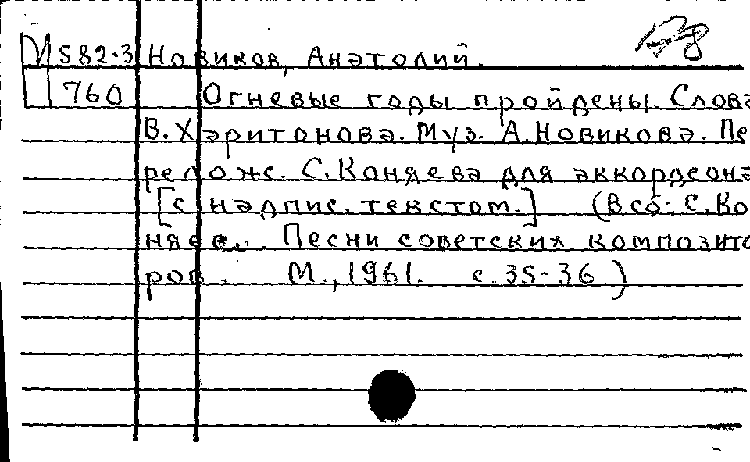 М582-3 Новиков, Анатолий.
760 Огневые годы пройдены. Слова
В. Харитонова. Муз. А. Новикова. Пе
релож. С. Коняева для аккордеона
[с надпис. текстом.] (В сб: С. Ко
няев. Песни советских композито
ров. М., 1961. с. 35-36)